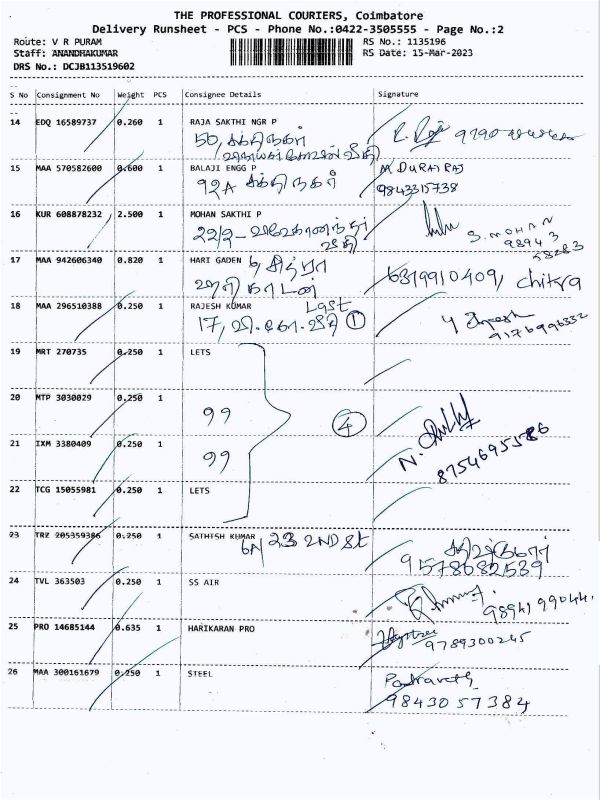 THE PROFESSIONAL COURIERS, Coimbatore
Delivery Runsheet - PCS - Phone No.:0422-3505555 - Page No.:2
Route: V R PURAM
RS No.: 1135196
Staff: ANANDHAKUMAR
RS Date: 15-Mar-2023
DRS No.: DCJB113519602
S No Consignment No Weight PCS Consignee Details Signature
14 EDQ 16589737 0.260 1 RAJA SAKTHI NGR P
50, சக்திநகர்
15 MAA 570582600 0.600 1 BALAJI ENGG P M DURAI RAJ
92A சக்தி நகர் 9843315738
16 KUR 608878232 2.500 1 MOHAN SAKTHI P
22/2- விவேகானந்தர் S. MOHAN
வீதி 98943
58283
17 MAA 942606340 0.820 1 HARI GADEN 6 சித்ரா
ஹரி கார்டன் 6319910409, chitra
18 MAA 296510388 0.250 1 RAJESH KUMAR Last
17, வி.கோ.வீதி 1
9176996332
19 MRT 270735 0.250 1 LETS
20 MTP 3030029 0.250 1
99 4
21 IXM 3380409 0.250 1
99 8754695586
22 TCG 15055981 0.250 1 LETS
23 TRZ 205359386 0.250 1 SATHISH KUMAR
6A/23 2ND St 9578682539
24 TVL 363503 0.250 1 SS AIR
9894199044.
25 PRO 14685144 0.635 1 HARIKARAN PRO
9789300245
26 MAA 300161679 0.250 1 STEEL
9843057384